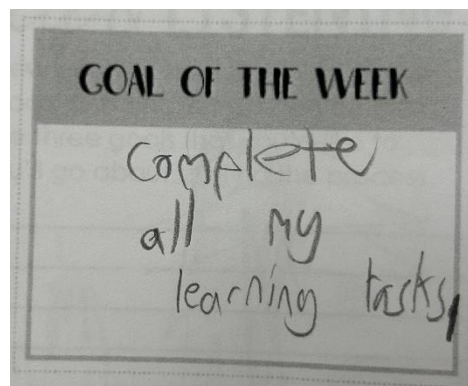 GOAL OF THE WEEK
complete
all my
learning tasks,